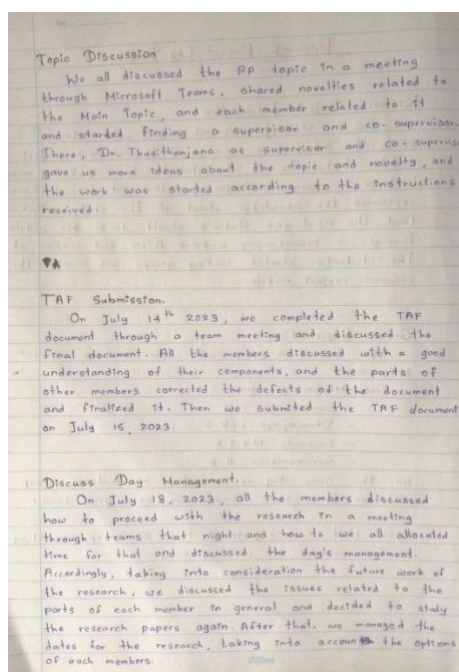 Topic Discussion
We all discussed the RP topic in a meeting
through Microsoft Teams, shared novelties related to
the Main Topic, and each member related to it
and starded finding a supervisor and co-supervisor.
There, Dr. Thusithanjana as supervisor and co-supervis
gave us more ideas about the topic and novelty, and
the work was started according to the instructions
received
TAF Submission.
On July 14th 2023, we completed the TAF
document through a team meeting and discussed the
final document. All the members discussed with a good
understanding of their components, and the parts of
other members corrected the defects of the document
and finalized it. Then we submited the TAF document
on July 15, 2023.
Discuss Day Management.
On July 18, 2023, all the members discussed
how to proceed with the research in a meeting
through teams that night and how to we all allocated
time for that and discussed the day's management.
Accordingly, taking into consideration the future work of
the research, we discussed the issues related to the
parts of each member in general and decided to study
the research papers again. After that, we managed the
dates for the research, taking into account the options
of each members.